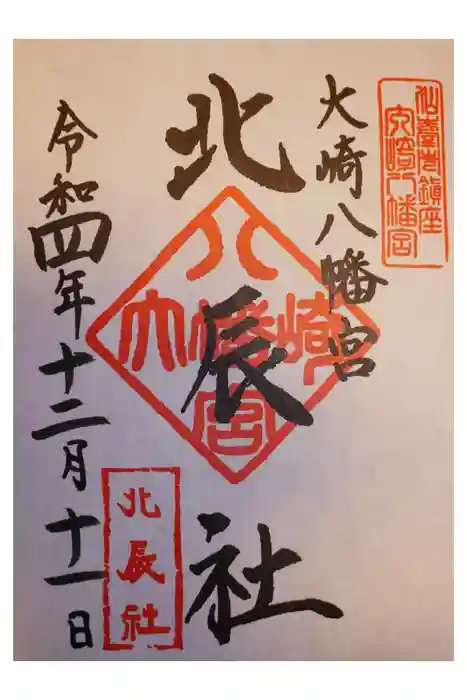 仙臺市鎮座
大崎八幡宮
大崎八幡宮
北辰社
八
大崎幡
宮
北辰社
令和四年十二月十一日